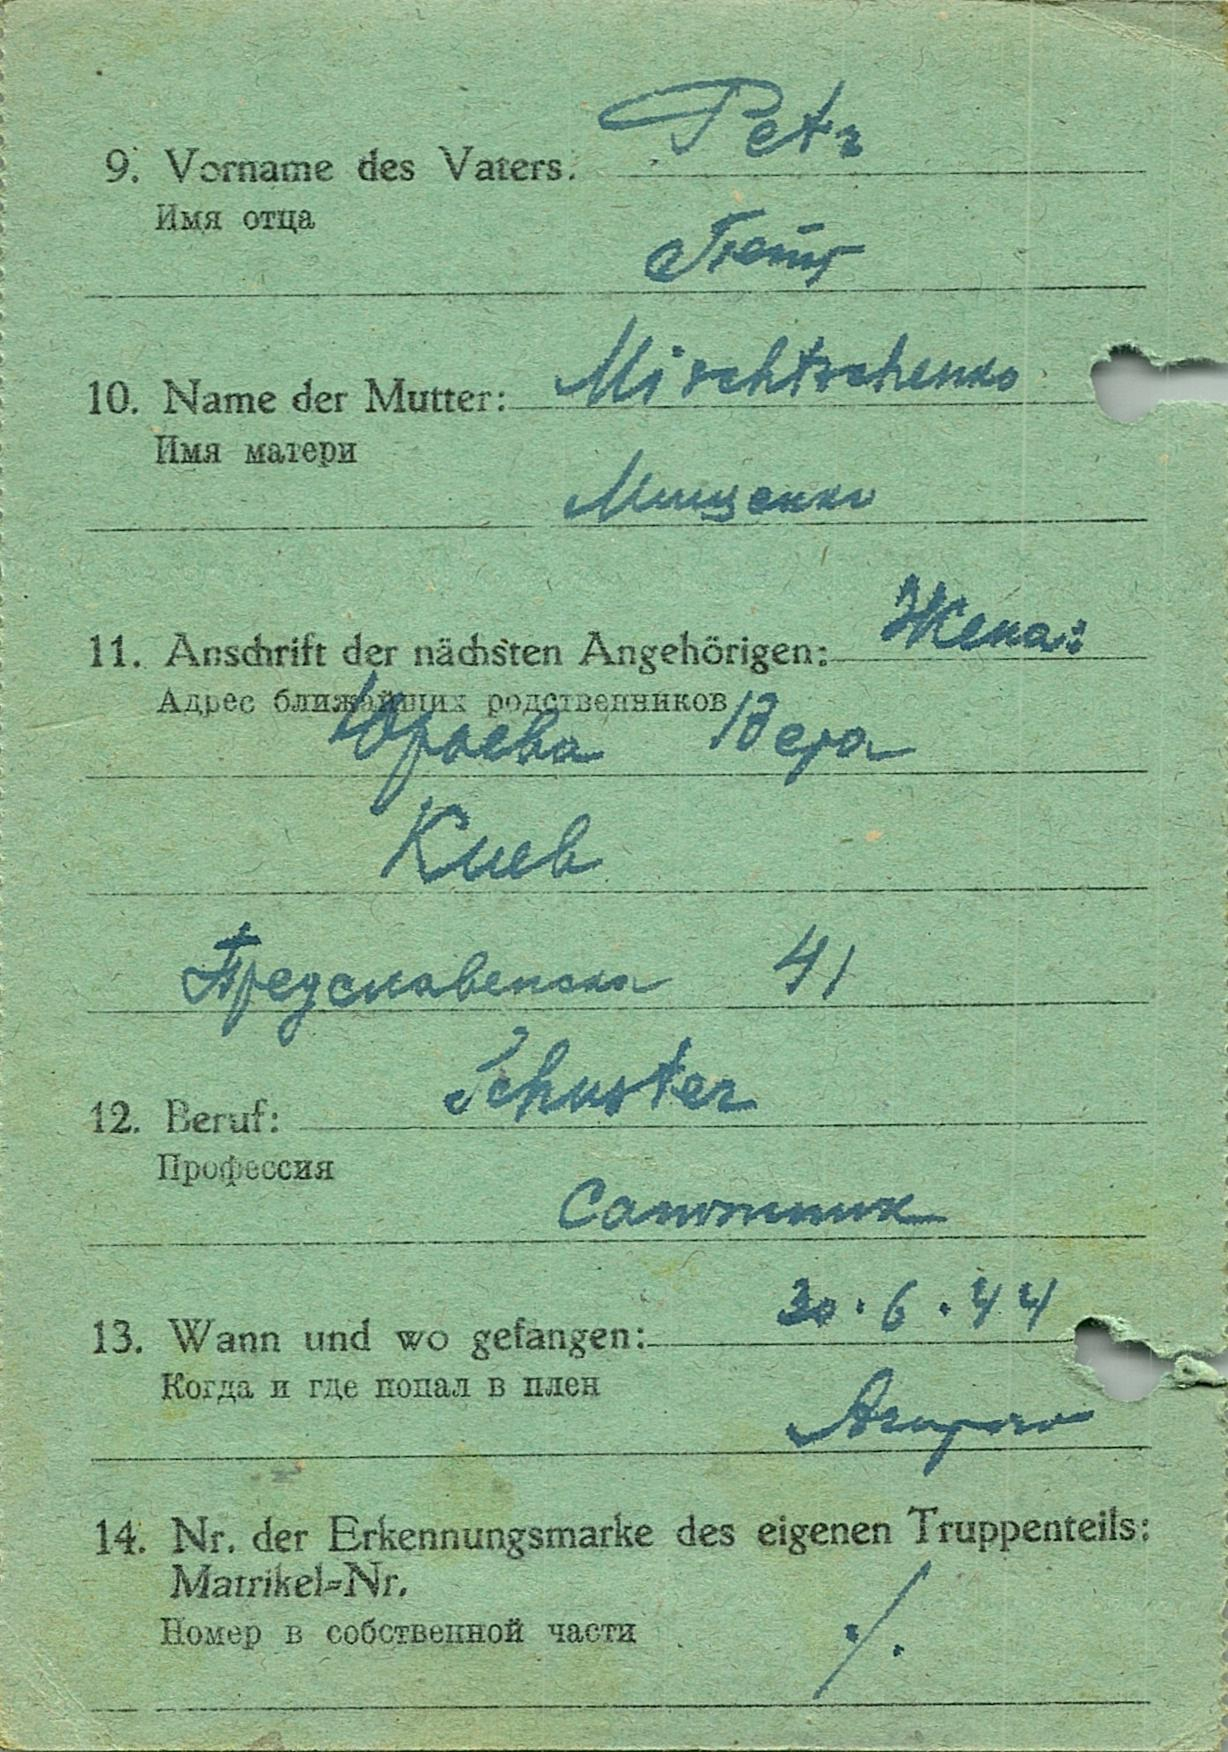 9. Vorname des Vaters: Petr
Имя отца
Петр
10. Name der Mutter: Mischtschenko
Имя матери
Мищенко
11. Anschrift der nächsten Angehörigen: Жена:
Адрес ближайших родственников
Юрьева Вера
Киев
41
12. Beruf: Schuster
Профессия
Сапожник
13. Wann und wo gefangen: 30.6.44
Когда и где попал в плен
14. Nr. der Erkennungsmarke des eigenen Truppenteils:
Matrikel=Nr.
Номер в собственной части
·/.